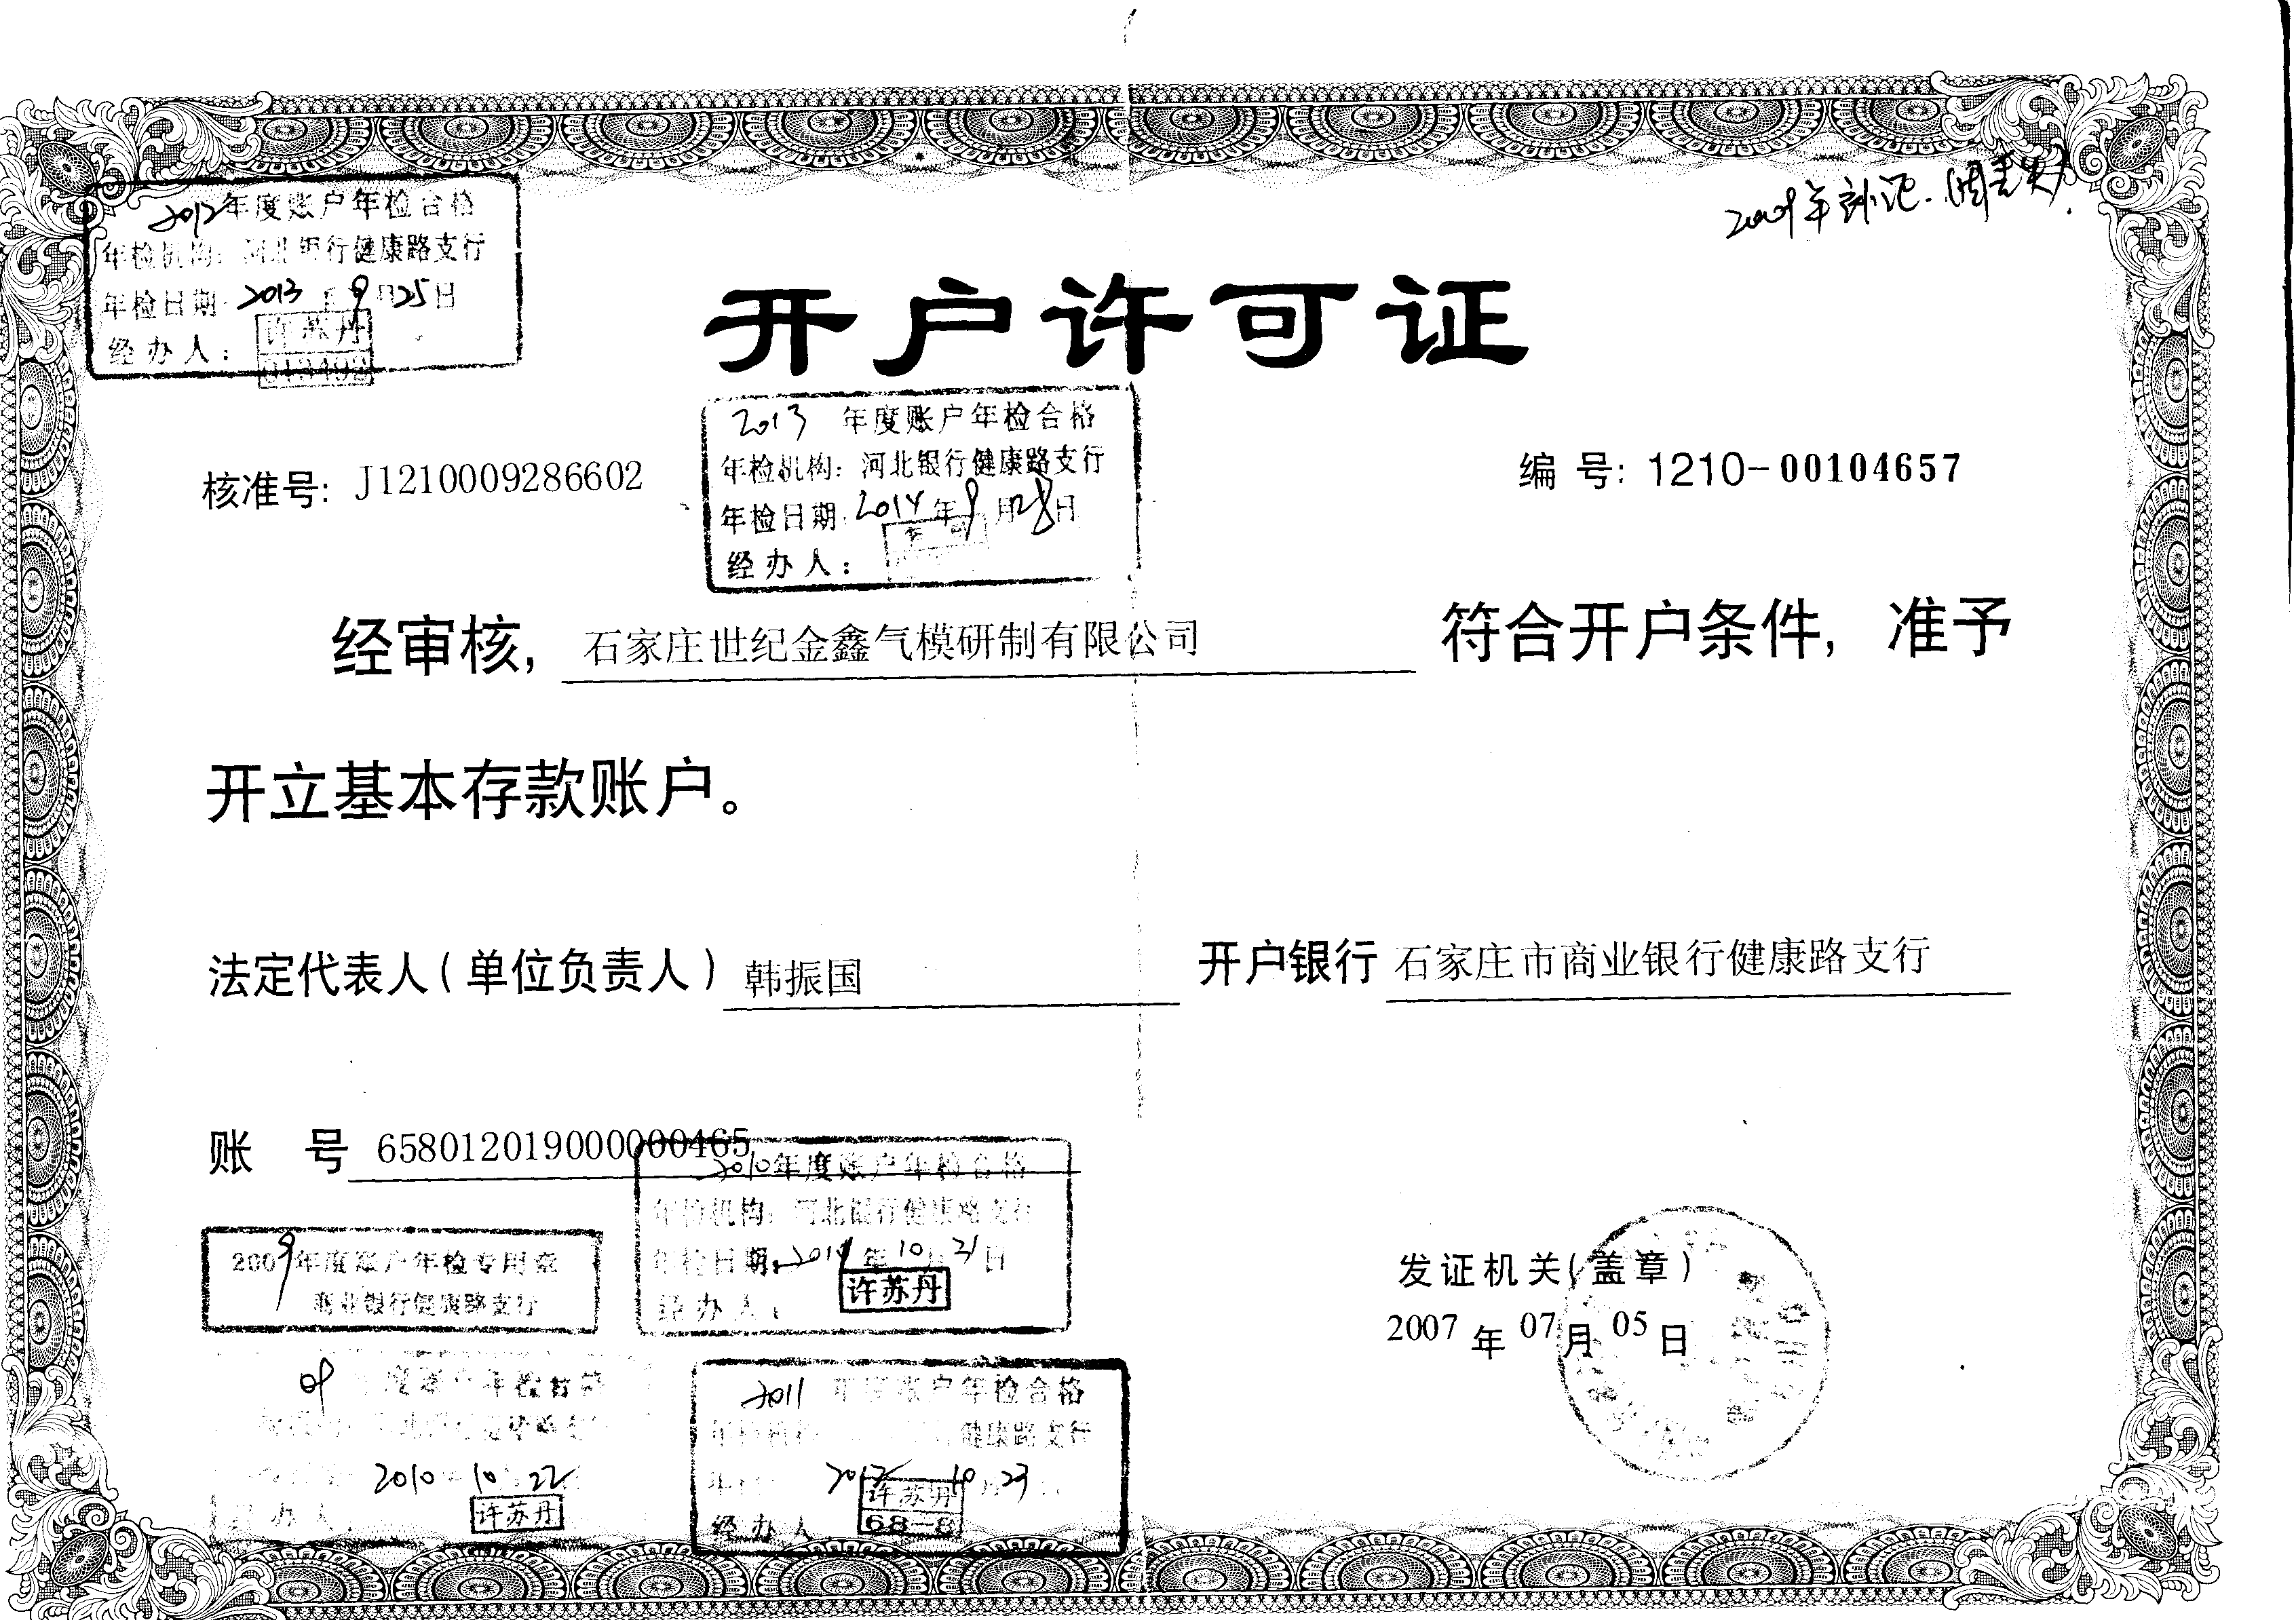 2012年度账户年检合格
年检机构：河北银行健康路支行
年检日期 2013年9月25日
经办人：许苏丹
2009年
开户许可证
2013 年度账户年检合格
年检机构：河北银行健康路支行
年检日期 2014年9月28日
经办人：
核准号：J1210009286602
编 号：1210-00104657
经审核，石家庄世纪金鑫气模研制有限公司 符合开户条件，准予
开立基本存款账户。
法定代表人（单位负责人）韩振国 开户银行 石家庄市商业银行健康路支行
账 号 658012019000000465
2010年度账户年检合格
年检机构：河北银行健康路支行
年检日期 年10月21日
经办人：许苏丹
2009年度账户年检专用章
商业银行健康路支行
发证机关（盖章）
2007 年 07 月 05 日
09 年检合格
2010 10 22
经办人 许苏丹
2011 年度账户年检合格
年检机构 健康路支行
2012 10月23
经办人 许苏丹
68-8